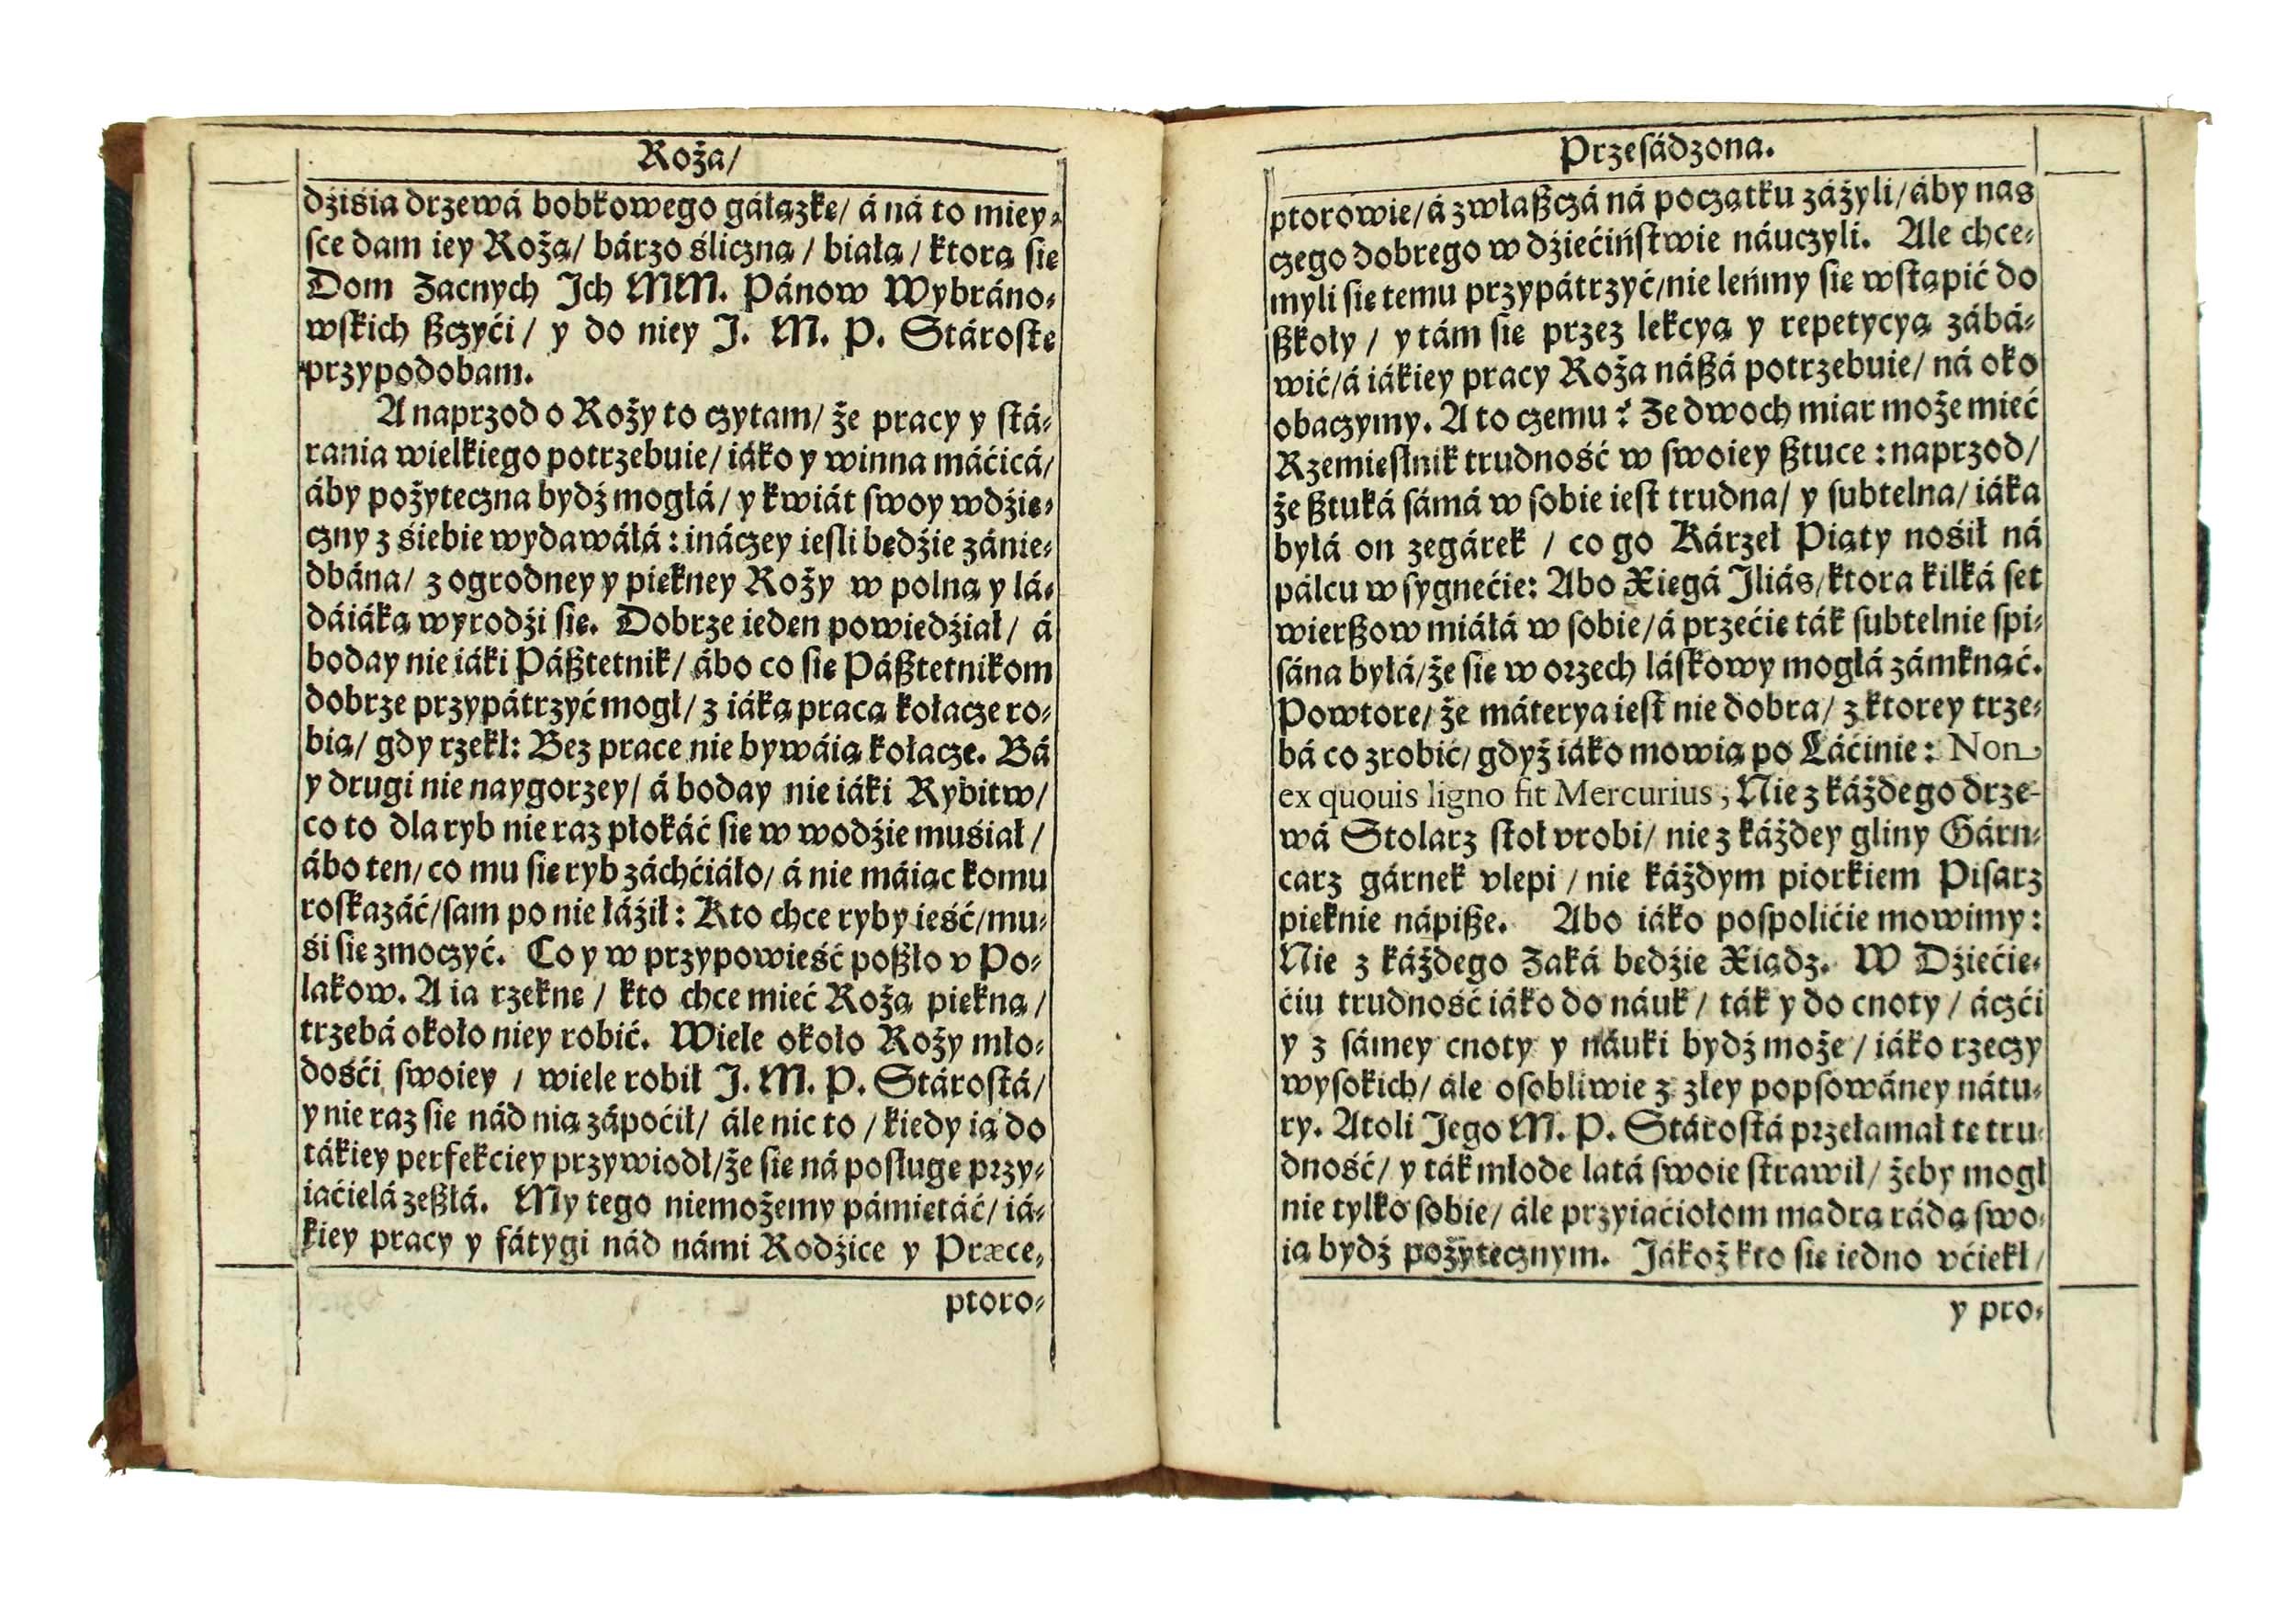 Roża/
dźiśia drzewá bobkowego gáłązkę/ á ná to miey-
sce dam iey Rożą/ bárzo śliczną/ białą/ ktorą się
Dom Zacnych Ich MM. Pánow Wybráno-
wskich ßczyći/ y do niey J. M. P. Stárostę
przypodobam.
A naprzod o Roży to czytam/ że pracy y stá-
rania wielkiego potrzebuie/ iáko y winna máćicá/
áby pożyteczna bydź mogłá/ y kwiát swoy wdźię-
czny z śiebie wydawáłá: ináczey iesli będźie zánie-
dbána/ z ogrodney y piękney Roży w polną y lá-
dáiáką wyrodźi się. Dobrze ieden powiedźiał/ á
boday nie iáki Páßtetnik/ ábo co się Páßtetnikom
dobrze przypátrzyć mogł/ z iáką pracą kołacze ro-
bią/ gdy rzekł: Bez prace nie bywáią kołacze. Bá
y drugi nie naygorzey/ á boday nie iáki Rybitw/
co to dla ryb nie raz płokáć się w wodźie muśiał/
ábo ten/ co mu się ryb záchćiáło/ á nie máiąc komu
roskazáć/ sam po nie łáźił: Kto chce ryby ieść/ mu-
śi się zmoczyć. Co y w przypowieść poßło v Po-
lakow. A ia rzeknę/ kto chce mieć Rożą piękną/
trzebá około niey robić. Wiele około Roży mło-
dośći swoiey/ wiele robił J. M. P. Stárostá/
y nie raz się nád nią zápoćił/ ále nic to/ kiedy ią do
tákiey perfekciey przywiodł/ że się ná posługę przy-
iaćielá zeßłá. My tego niemożemy pámiętáć/ iá-
kiey pracy y fátygi nád námi Rodźice y Præce-
ptoro-
Przesádzona.
ptorowie/ á zwłaßczá ná początku záżyli/ áby nas
czego dobrego w dźiećiństwie náuczyli. Ale chce-
myli się temu przypátrzyć/ nie leńmy się wstąpić do
ßkoły/ y tám się przez lekcyą y repetycyą zábá-
wić/ á iákiey pracy Roża náßá potrzebuie/ ná oko
obaczymy. A to czemu? Ze dwoch miar może mieć
Rzemieslnik trudność w swoiey ßtuce: naprzod/
że ßtuká sámá w sobie iest trudna/ y subtelna/ iáka
byłá on zegárek/ co go Kárzeł Piąty nośił ná
pálcu w sygnećie: Abo Xięgá Iliás/ ktora kilká set
wierßow miáłá w sobie/ á przećię ták subtelnie spi-
sána byłá/ że się w orzech láskowy mogłá zámknąć.
Powtore/ że máterya iest nie dobra/ z ktorey trze-
bá co zrobić/ gdyż iáko mowią po Łáćinie: Non
ex quouis ligno fit Mercurius, Nie z káżdego drze-
wá Stolarz stoł vrobi/ nie z káżdey gliny Gárn-
carz gárnek vlepi/ nie káżdym piorkiem Pisarz
pięknie nápiße. Abo iáko pospolićie mowimy:
Nie z káżdego Zaká będźie Xiądz. W Dźiećię-
ćiu trudność iáko do náuk/ ták y do cnoty/ áczći
y z sámey cnoty y náuki bydź może/ iáko rzeczy
wysokich/ ále osobliwie z zley popsowáney nátu-
ry. Atoli Jego M. P. Stárostá przełamał tę tru-
dność/ y ták młode latá swoie strawił/ żeby mogł
nie tylko sobie/ ále przyiaćiołom mądrą rádą swo-
ią bydź pożytecznym. Jákoż kto się iedno vćiekł/
y pro-